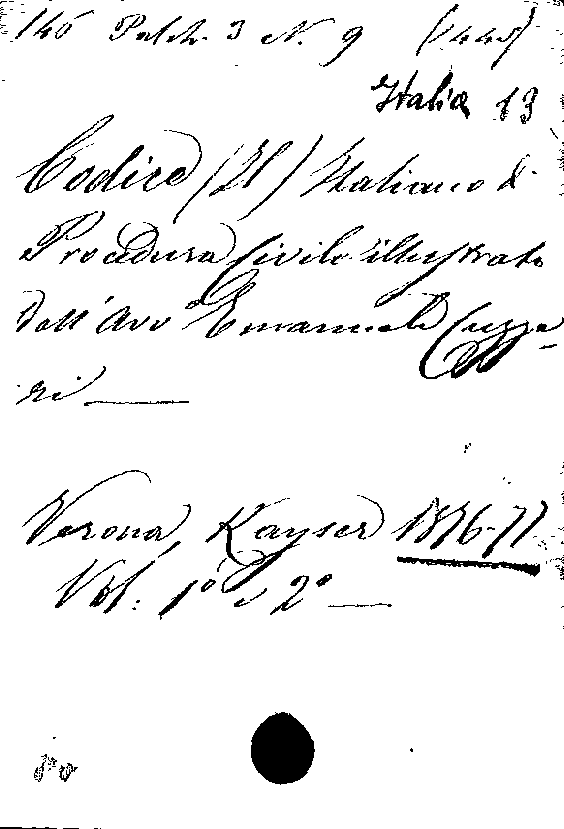 146 Palch. 3 N. 9 (1445)
Italia 13
Codice (Il) Italiano di
Procedura Civile illustrato
dall'Avvo Emanuele Cuzze-
ri
Verona, Kayser 1876-77
Vol: 1º e 2º
8º